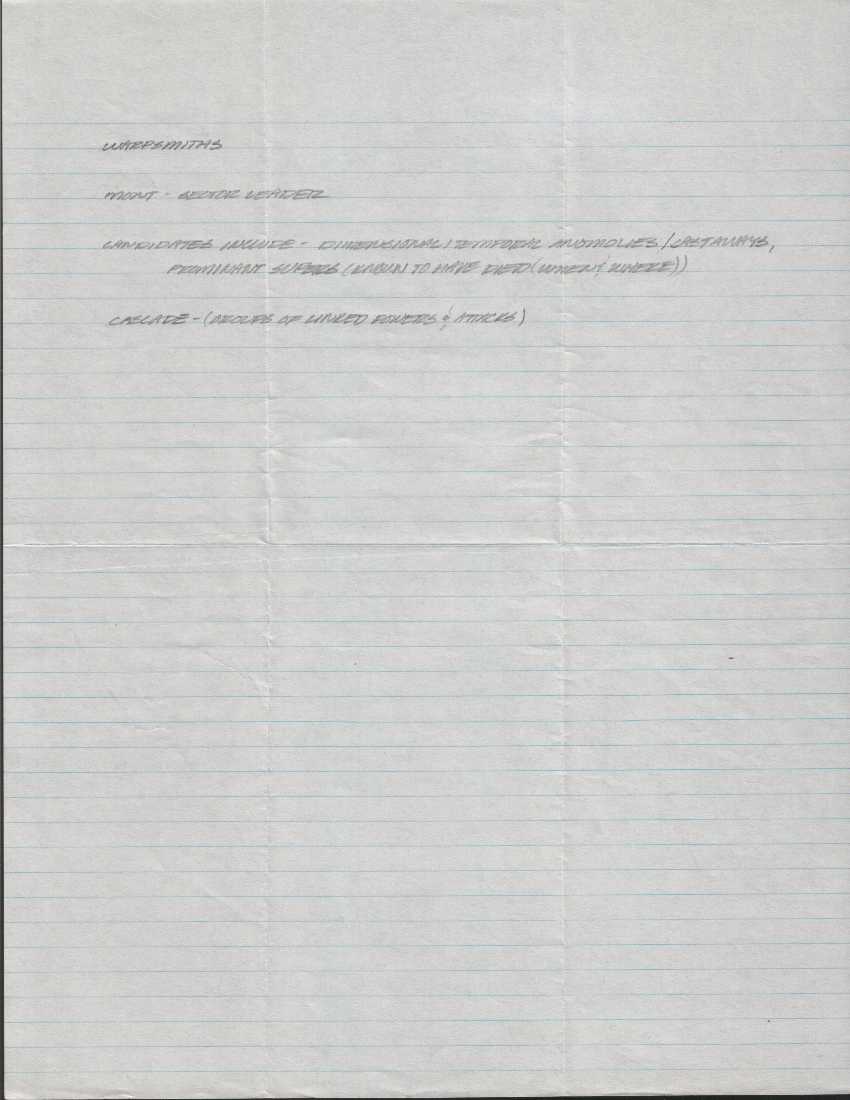 WARPSMITHS
MONT - SECTOR LEADER
CANDIDATES INCLUDE - DIMENSIONAL/TEMPORAL ANOMOLIES/CASTAWAYS,
PROMINANT SUPERS (KNOWN TO HAVE DIED (WHEN & WHERE))
CASCADE - (GROUPS OF LINKED POWERS & ATTACKS)